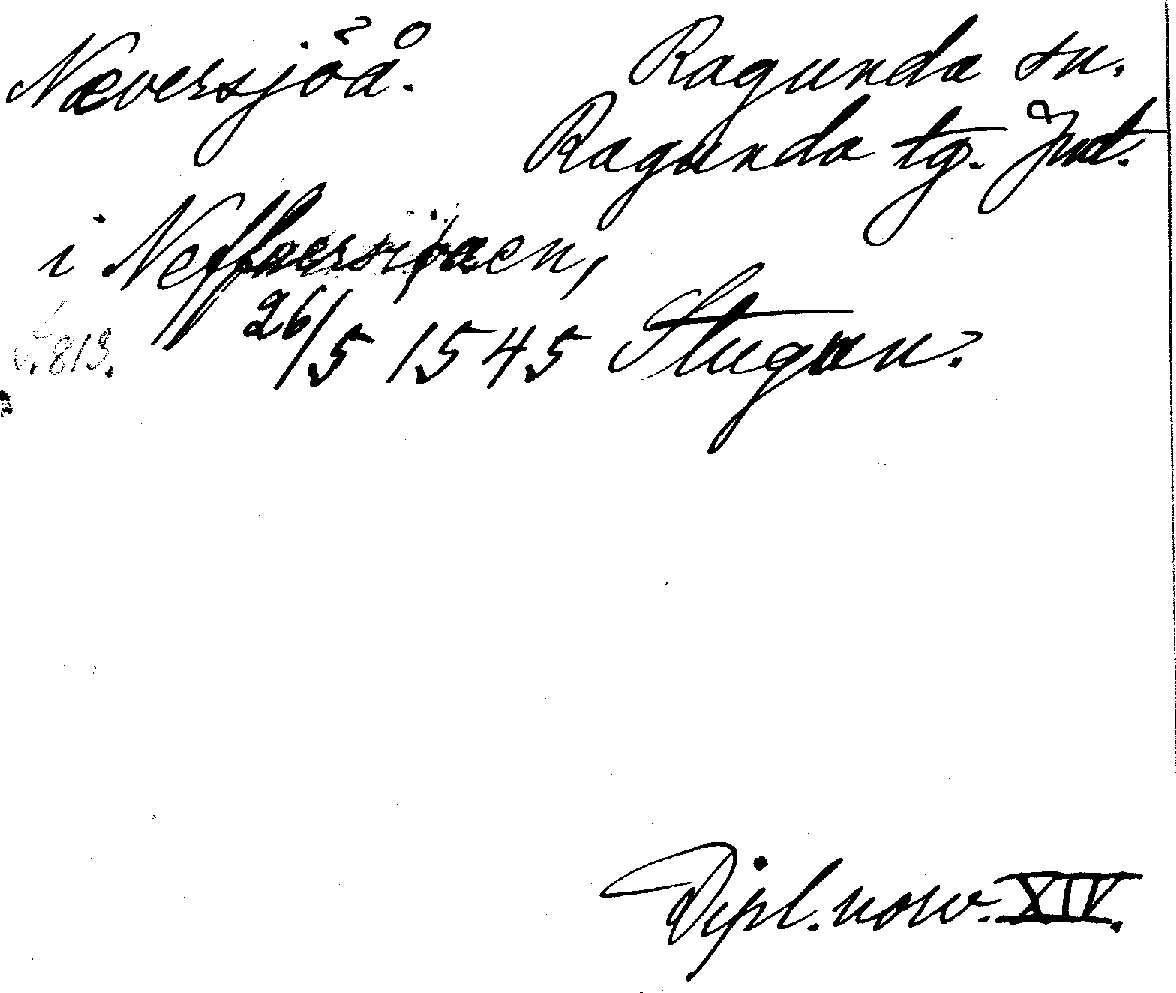 Næversjöå. Ragunda sn.
Ragunda tg. Jmt.
i Neffuersiøaen,
s. 813. 26/5 1545 Stugun.
Dipl. norv. XIV.